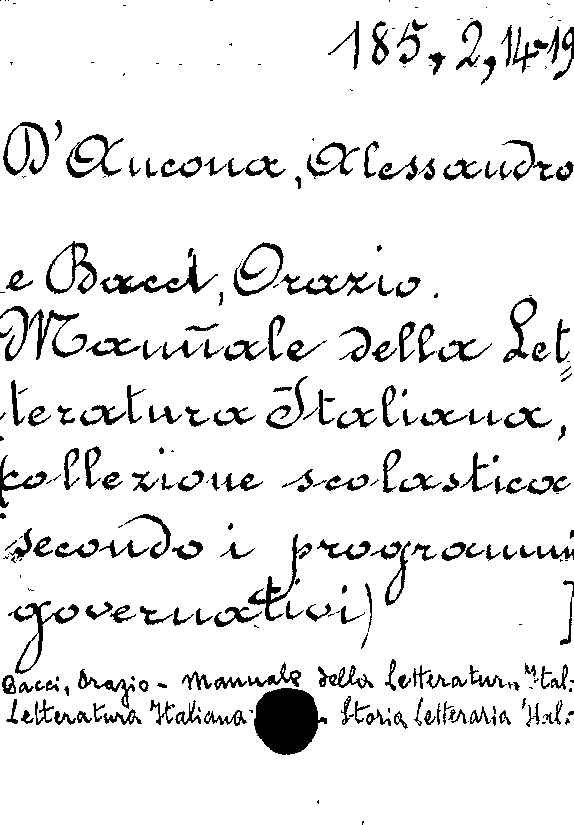 185, 2, 14-19
D'Ancona, Alessandro
e Bacci, Orazio.
Manuale della Let=
teratura Italiana,
(collezione scolastica
secondo i programmi
governativi) ]
Bacci, Orazio - Manuale della Letteratura Ital:
Letteratura Italiana - Storia Letteraria Ital: